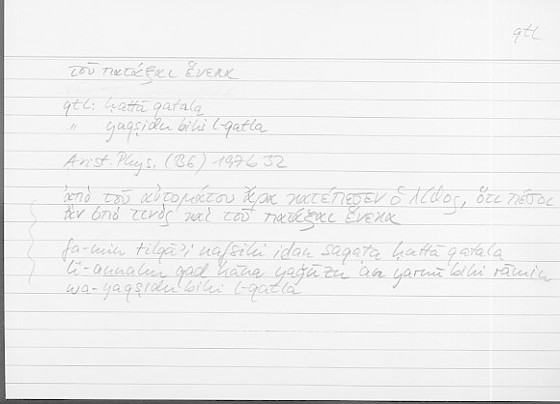 qtl
τοῦ πατάξαι ἕνεκα
qtl: ḥattā qatala
" yaqṣidu bihi l-qatla
Arist. Phys. (B6) 197b32
ἀπὸ τοῦ αὐτομάτου ἄρα κατέπεσεν ὁ λίθος, ὅτι πέσοι
ἂν ὑπὸ τινὸς καὶ τοῦ πατάξαι ἕνεκα
fa-min tilqāʾi nafsihi iḏan saqaṭa ḥattā qatala
li-annahu qad kāna yaǧūzu ʾan yarmī bihi rāmin
wa-yaqṣidu bihi l-qatla